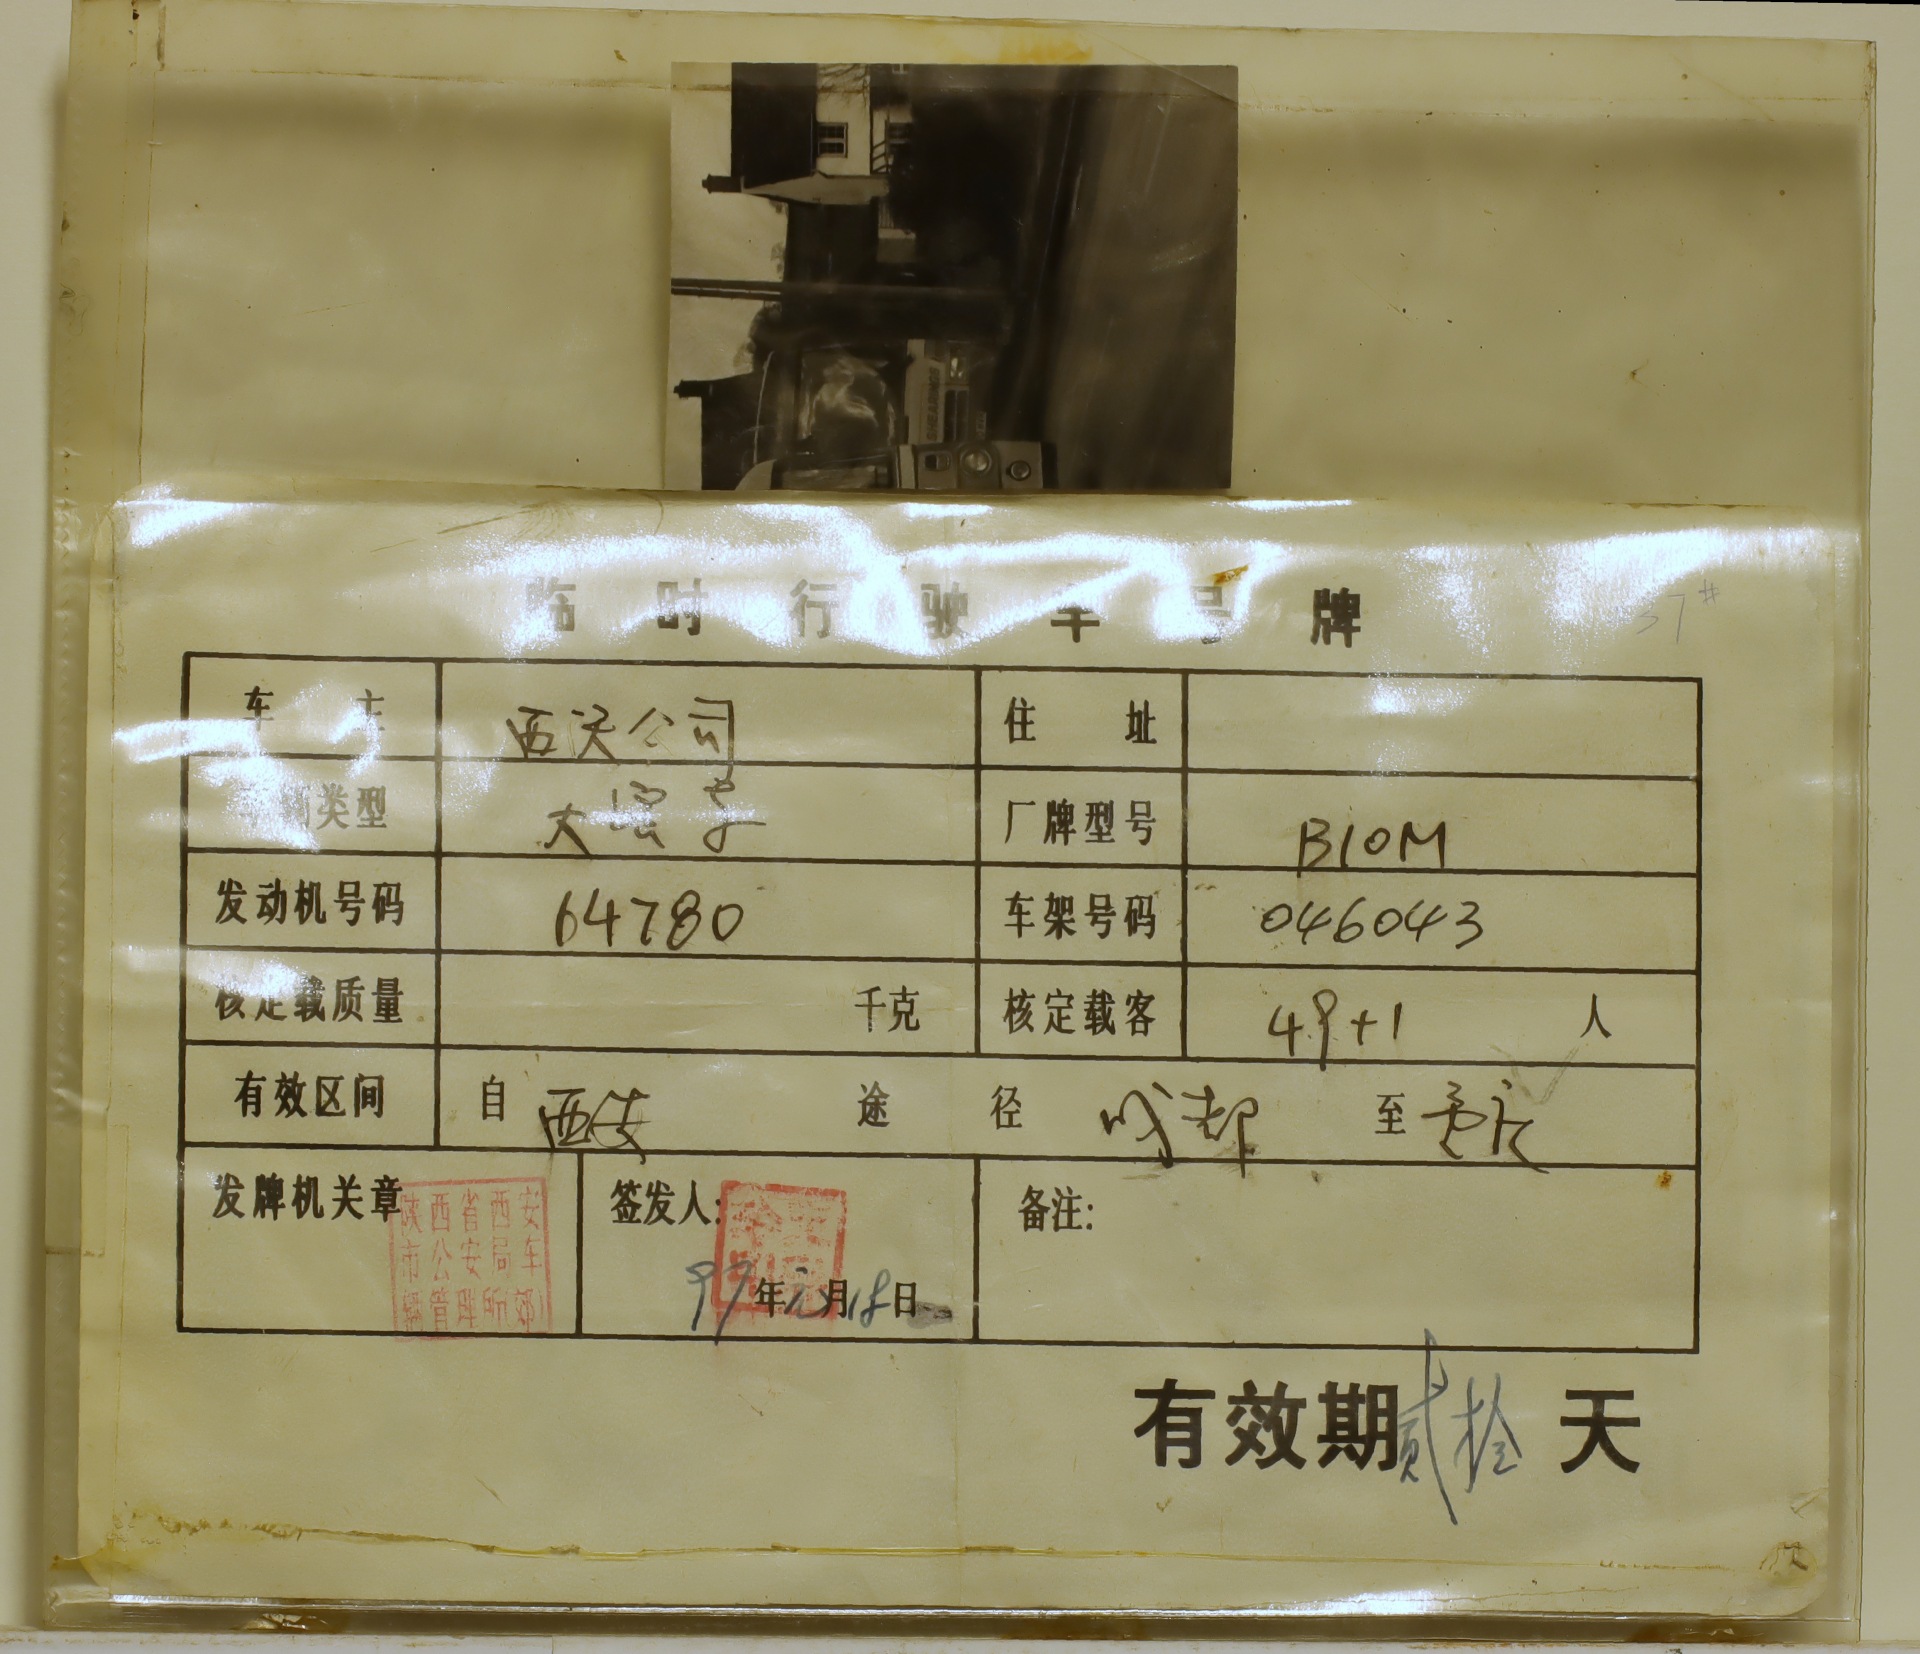 临时行驶车号牌
37#
车主 西沃公司 住址
车辆类型 大客车 厂牌型号 B10M
发动机号码 64780 车架号码 046043
核定载质量 千克 核定载客 49+1 人
有效区间 自 西安 途径 成都 至 重庆
发牌机关章 签发人: 备注:
陕西省西安
市公安局车
辆管理所郊
97年元月18日
有效期贰拾天